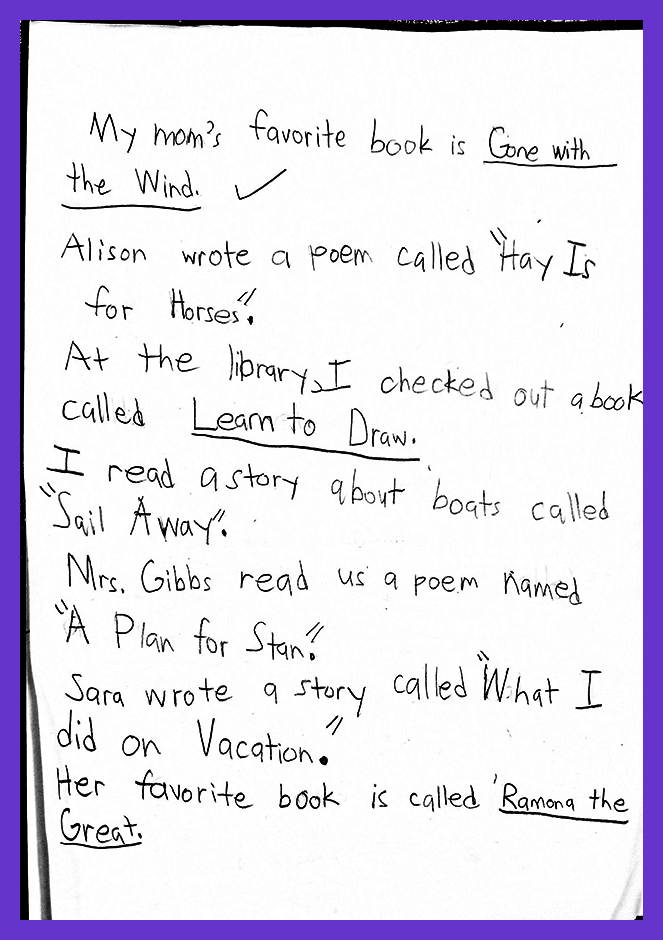 My mom's favorite book is Gone with
the Wind. ✓
Alison wrote a poem called "Hay Is
for Horses".
At the library, I checked out a book
called Learn to Draw.
I read a story about boats called
"Sail Away".
Mrs. Gibbs read us a poem named
"A Plan for Stan."
Sara wrote a story called "What I
did on Vacation."
Her favorite book is called 'Ramona the
Great.